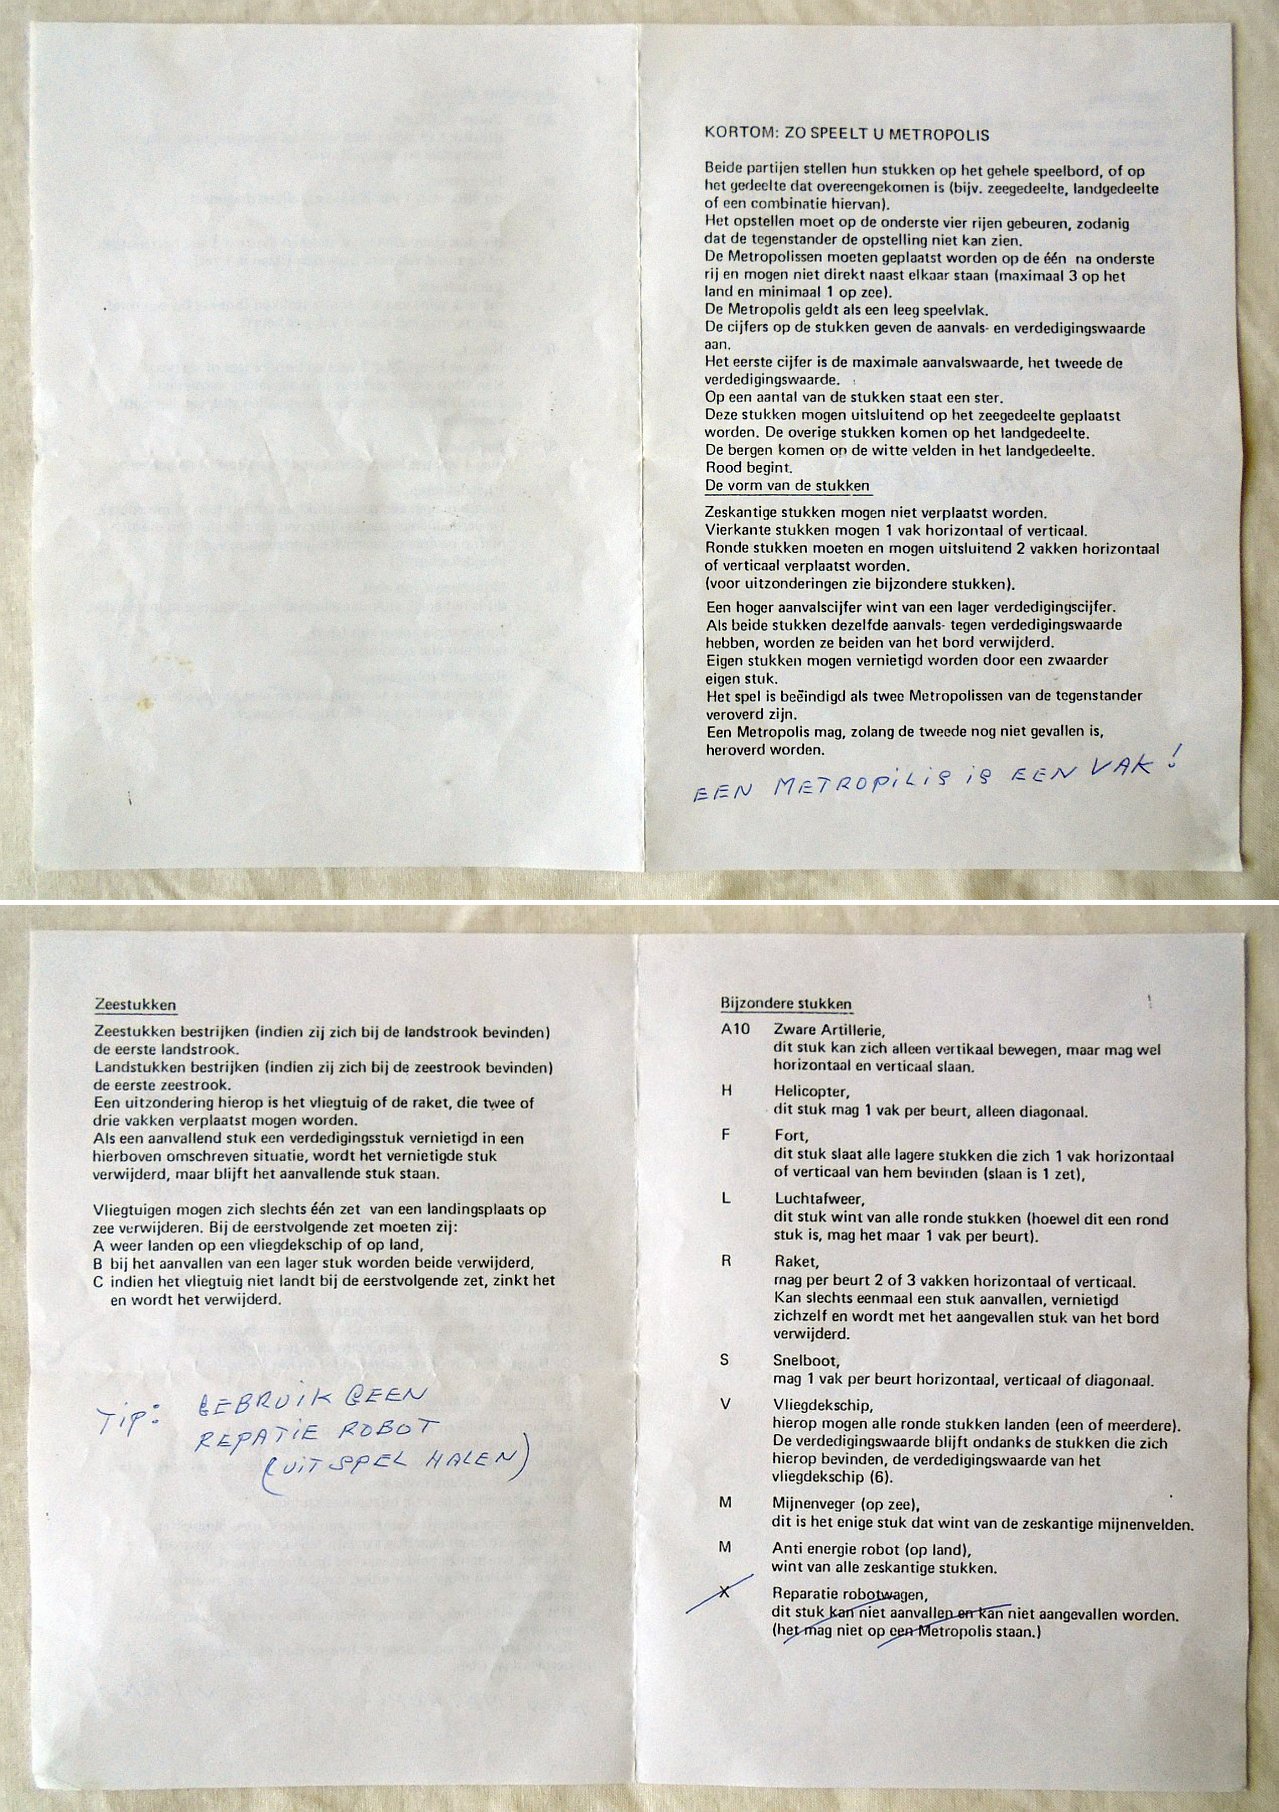 KORTOM: ZO SPEELT U METROPOLIS
Beide partijen stellen hun stukken op het gehele speelbord, of op
het gedeelte dat overeengekomen is (bijv. zeegedeelte, landgedeelte
of een combinatie hiervan).
Het opstellen moet op de onderste vier rijen gebeuren, zodanig
dat de tegenstander de opstelling niet kan zien.
De Metropolissen moeten geplaatst worden op de één na onderste
rij en mogen niet direkt naast elkaar staan (maximaal 3 op het
land en minimaal 1 op zee).
De Metropolis geldt als een leeg speelvlak.
De cijfers op de stukken geven de aanvals- en verdedigingswaarde
aan.
Het eerste cijfer is de maximale aanvalswaarde, het tweede de
verdedigingswaarde.
Op een aantal van de stukken staat een ster.
Deze stukken mogen uitsluitend op het zeegedeelte geplaatst
worden. De overige stukken komen op het landgedeelte.
De bergen komen op de witte velden in het landgedeelte.
Rood begint.
De vorm van de stukken
Zeskantige stukken mogen niet verplaatst worden.
Vierkante stukken mogen 1 vak horizontaal of verticaal.
Ronde stukken moeten en mogen uitsluitend 2 vakken horizontaal
of verticaal verplaatst worden.
(voor uitzonderingen zie bijzondere stukken).
Een hoger aanvalscijfer wint van een lager verdedigingscijfer.
Als beide stukken dezelfde aanvals- tegen verdedigingswaarde
hebben, worden ze beiden van het bord verwijderd.
Eigen stukken mogen vernietigd worden door een zwaarder
eigen stuk.
Het spel is beëindigd als twee Metropolissen van de tegenstander
veroverd zijn.
Een Metropolis mag, zolang de tweede nog niet gevallen is,
heroverd worden.
EEN METROPILIS IS EEN VAK!
Zeestukken
Zeestukken bestrijken (indien zij zich bij de landstrook bevinden)
de eerste landstrook.
Landstukken bestrijken (indien zij zich bij de zeestrook bevinden)
de eerste zeestrook.
Een uitzondering hierop is het vliegtuig of de raket, die twee of
drie vakken verplaatst mogen worden.
Als een aanvallend stuk een verdedigingsstuk vernietigd in een
hierboven omschreven situatie, wordt het vernietigde stuk
verwijderd, maar blijft het aanvallende stuk staan.
Vliegtuigen mogen zich slechts één zet van een landingsplaats op
zee verwijderen. Bij de eerstvolgende zet moeten zij:
A weer landen op een vliegdekschip of op land,
B bij het aanvallen van een lager stuk worden beide verwijderd,
C indien het vliegtuig niet landt bij de eerstvolgende zet, zinkt het
en wordt het verwijderd.
TIP: GEBRUIK GEEN
REPATIE ROBOT
(UIT SPEL HALEN)
Bijzondere stukken
A10 Zware Artillerie,
dit stuk kan zich alleen vertikaal bewegen, maar mag wel
horizontaal en verticaal slaan.
H Helicopter,
dit stuk mag 1 vak per beurt, alleen diagonaal.
F Fort,
dit stuk slaat alle lagere stukken die zich 1 vak horizontaal
of verticaal van hem bevinden (slaan is 1 zet),
L Luchtafweer,
dit stuk wint van alle ronde stukken (hoewel dit een rond
stuk is, mag het maar 1 vak per beurt).
R Raket,
mag per beurt 2 of 3 vakken horizontaal of verticaal.
Kan slechts eenmaal een stuk aanvallen, vernietigd
zichzelf en wordt met het aangevallen stuk van het bord
verwijderd.
S Snelboot,
mag 1 vak per beurt horizontaal, verticaal of diagonaal.
V Vliegdekschip,
hierop mogen alle ronde stukken landen (een of meerdere).
De verdedigingswaarde blijft ondanks de stukken die zich
hierop bevinden, de verdedigingswaarde van het
vliegdekschip (6).
M Mijnenveger (op zee),
dit is het enige stuk dat wint van de zeskantige mijnenvelden.
M Anti energie robot (op land),
wint van alle zeskantige stukken.
X Reparatie robotwagen,
dit stuk kan niet aanvallen en kan niet aangevallen worden.
(het mag niet op een Metropolis staan.)